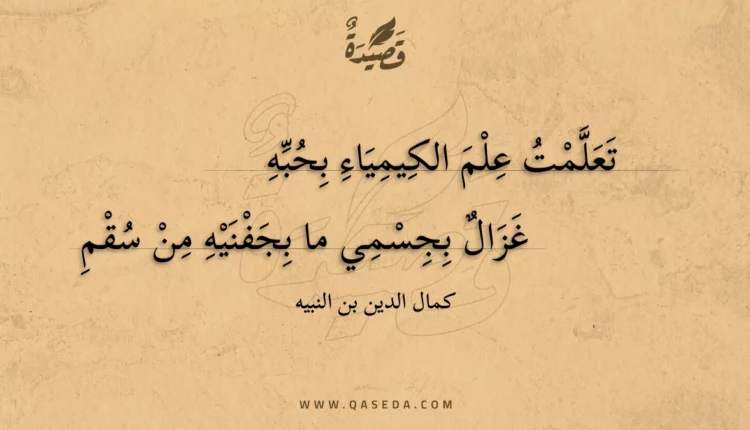 قَصِيدَةٌ
تَعَلَّمْتُ عِلْمَ الكِيمِيَاءِ بِحُبِّهِ
غَزَالٌ بِجِسْمِي ما بِجَفْنَيْهِ مِنْ سُقْمِ
كمال الدين بن النبيه
WWW.QASEDA.COM